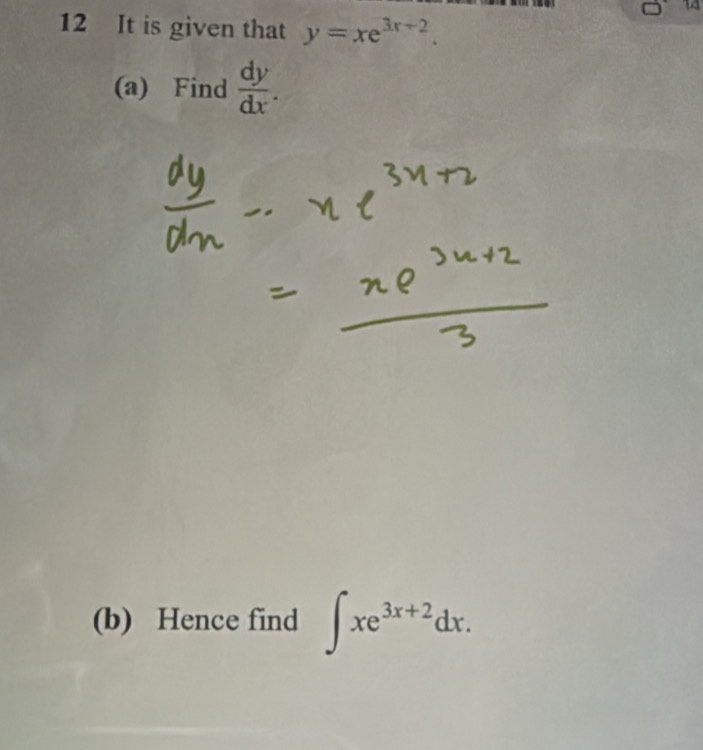 14
12 It is given that y = xe^{3x+2}.
(a) Find dy/dx.
dy/dx = x e^{3x+2}
= xe^{3x+2}/3
(b) Hence find ∫xe^{3x+2}dx.